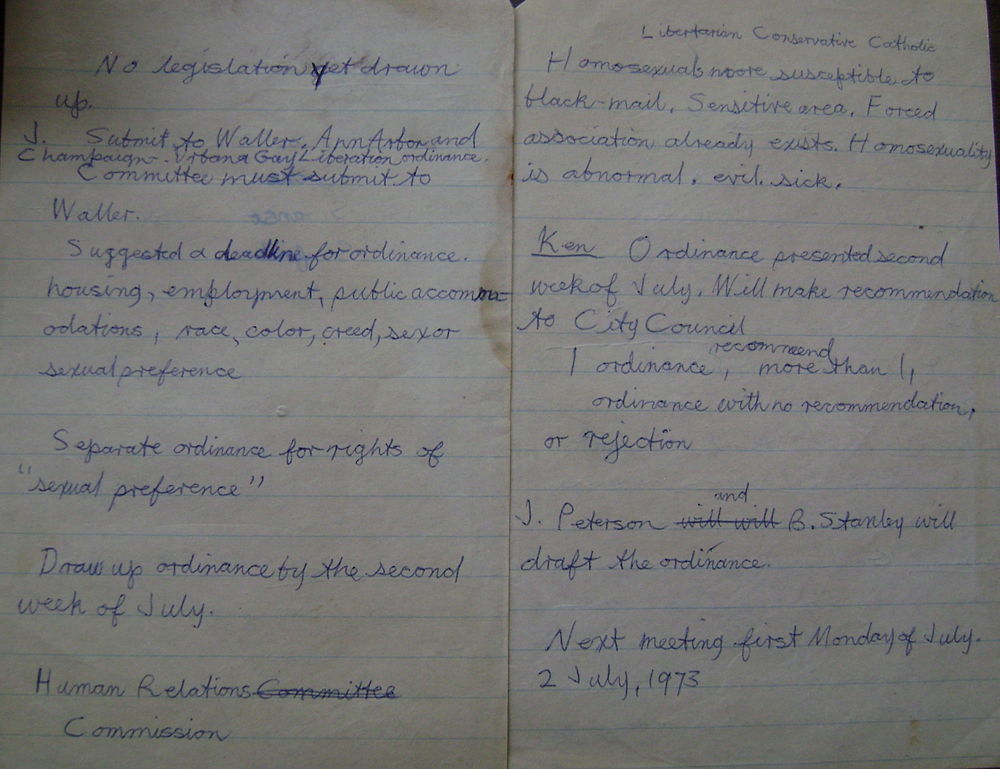 No legislation yet drawn
up.
J. Submit to Waller. Ann Arbor and
Champaign-Urbana Gay Liberation ordinance.
Committee must submit to
Waller.
Suggested a deadline for ordinance.
housing, employment, public accomm-
odations, race, color, creed, sex or
sexual preference
Separate ordinance for rights of
"sexual preference"
Draw up ordinance by the second
week of July.
Human Relations Committee
Commission
Libertarian Conservative Catholic
Homosexuals more susceptible to
black-mail. Sensitive area. Forced
association already exists. Homosexuality
is abnormal. evil. sick.
Ken Ordinance presented second
week of July. Will make recommendation
to City Council
recommend
1 ordinance, more than 1,
ordinance with no recommendation,
or rejection
and
J. Peterson will will B. Stanley will
draft the ordinance.
Next meeting first Monday of July.
2 July, 1973